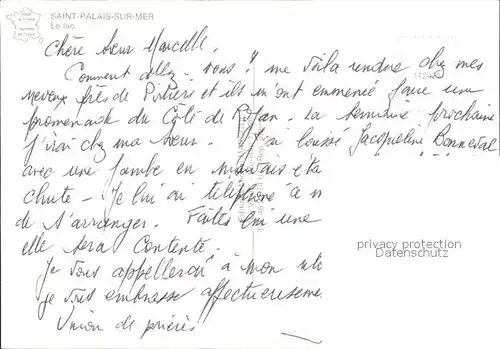 SAINT-PALAIS-SUR-MER
Le lac
Chère Sœur Marcelle.
Comment allez-vous? me voila rendue chez mes
neveux près de Poitiers et ils m'ont emmenié faire une
promenade du Côté de Royan. La semaine prochaine
j'irai chez ma sœur. J'ai laissé Jacqueline Bonneval
avec une jambe en mauvais éta
chute - Je lui ai téléphoné à
de s'arranger. Faites lui une
elle sera Contente.
Je vous appellerai à mon
je vous embrasse affectueuseme
Union de prières
privacy protection
Datenschutz